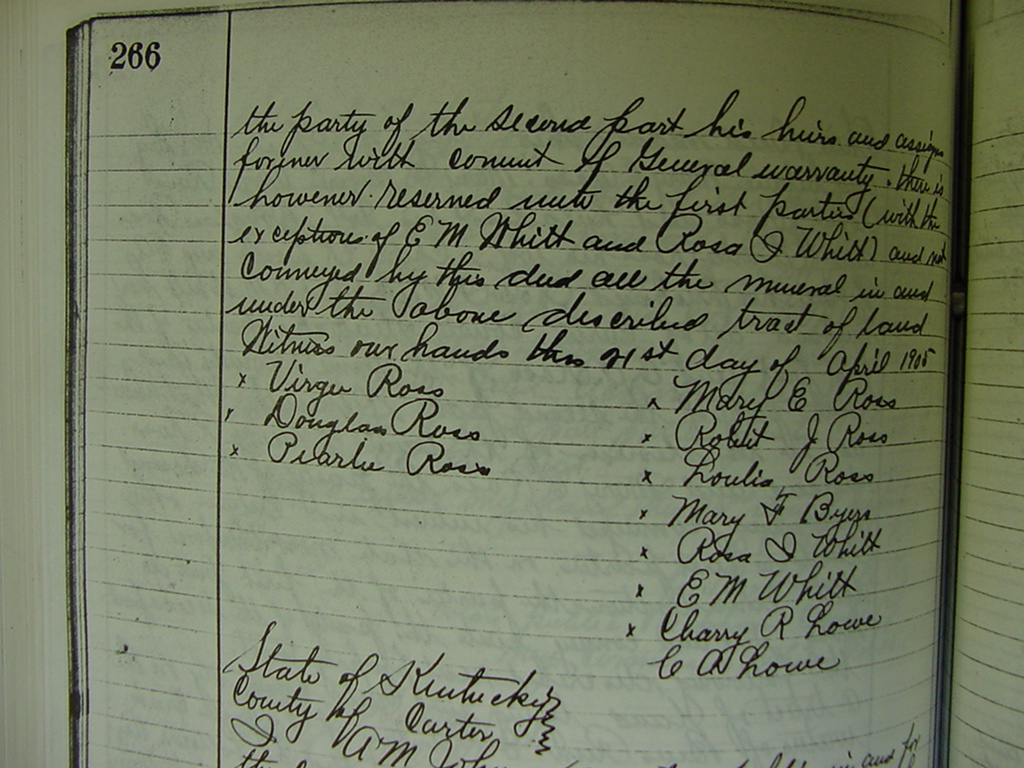 266
the party of the second part his heirs and assigns
forever with covenant of General warranty. there is
however reserved unto the first parties (with the
exceptions of E M Whitt and Rosa I Whitt) and not
Conveyed by this deed all the mineral in and
under the above described tract of land
Witness our hands this 21st day of April 1905
x Virgie Ross x Mary E Ross
x Douglas Ross x Robert J Ross
x Pearlie Ross x Ross
x Mary F Byers
x Rosa I Whitt
x E M Whitt
x Charry R Lowe
C A Lowe
State of Kentucky
County of Carter
I A M
in and for